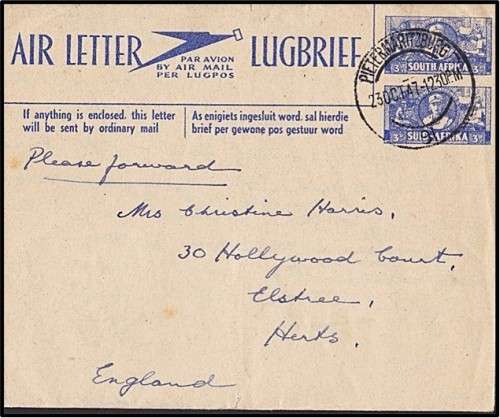 AIR LETTER
PAR AVION
BY AIR MAIL
PER LUGPOS
LUGBRIEF
SOUTH AFRICA
SOUTH AFRIKA
PIETERMARITZBURG
23 OCT 47-12 30 PM
If anything is enclosed, this letter
will be sent by ordinary mail
As enigiets ingesluit word, sal hierdie
brief per gewone pos gestuur word
Please forward
Mrs Christine Harris,
30 Hollywood Court,
Elstree,
Herts.
England